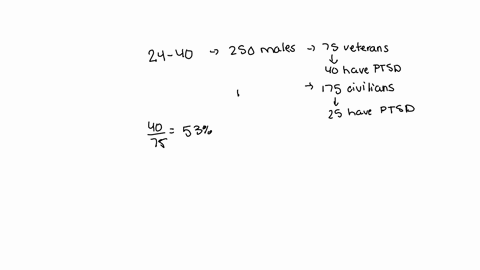 24-40 → 250 males → 75 veterans
↓
40 have PTSD
→ 175 civilians
↓
25 have PTSD
40/75 = 53%